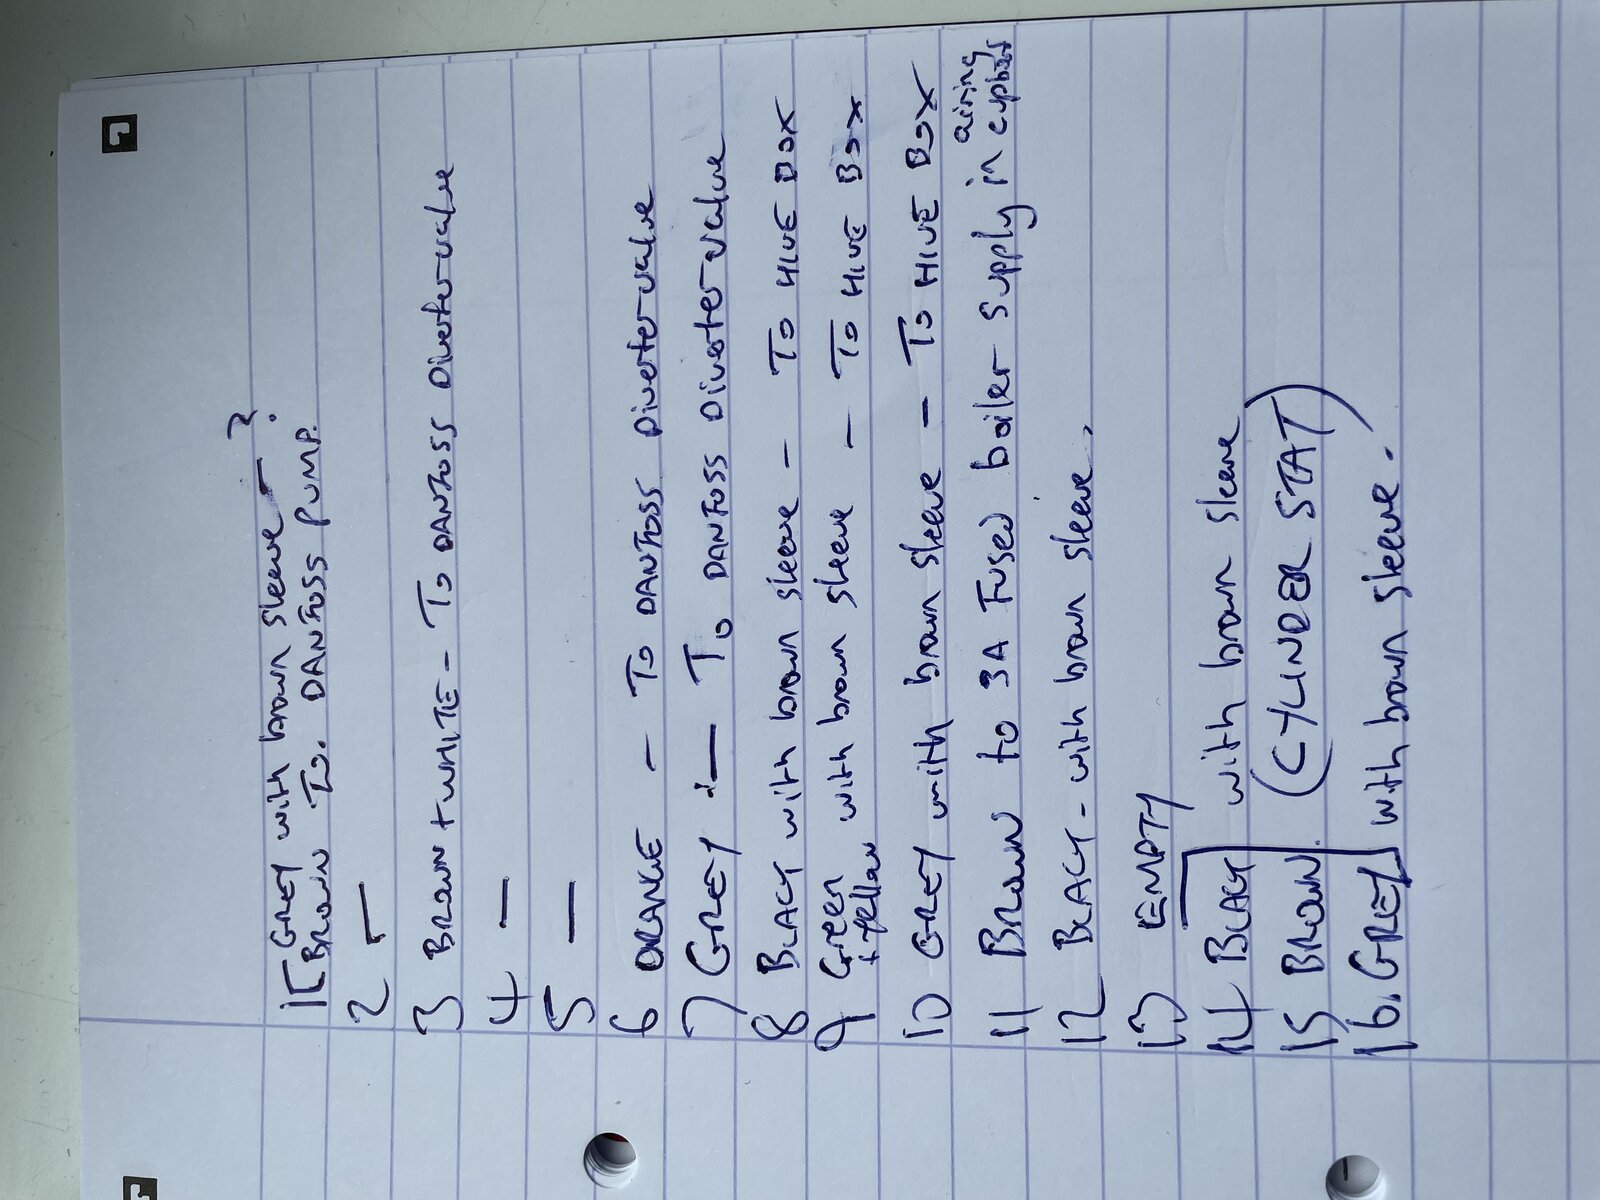 1[ GREY with brown sleeve - ?
BROWN To. DANFOSS PUMP.
2 -
3 BROWN + WHITE - To DANFOSS Diverter valve
4 -
5 -
6 ORANGE - To DANFOSS Diverter valve
7 GREY - To DANFOSS Diverter valve
8 BLACK with brown sleeve - To HIVE BOX
9 Green + yellow with brown sleeve - To HIVE BOX
10 GREY with brown sleeve - To HIVE BOX
11 BROWN to 3A Fused boiler supply in airing cupboard
12 BLACK - with brown sleeve.
13 EMPTY
14 BLACK with brown sleeve
15 BROWN (CYLINDER STAT)
16. GREY with brown sleeve.